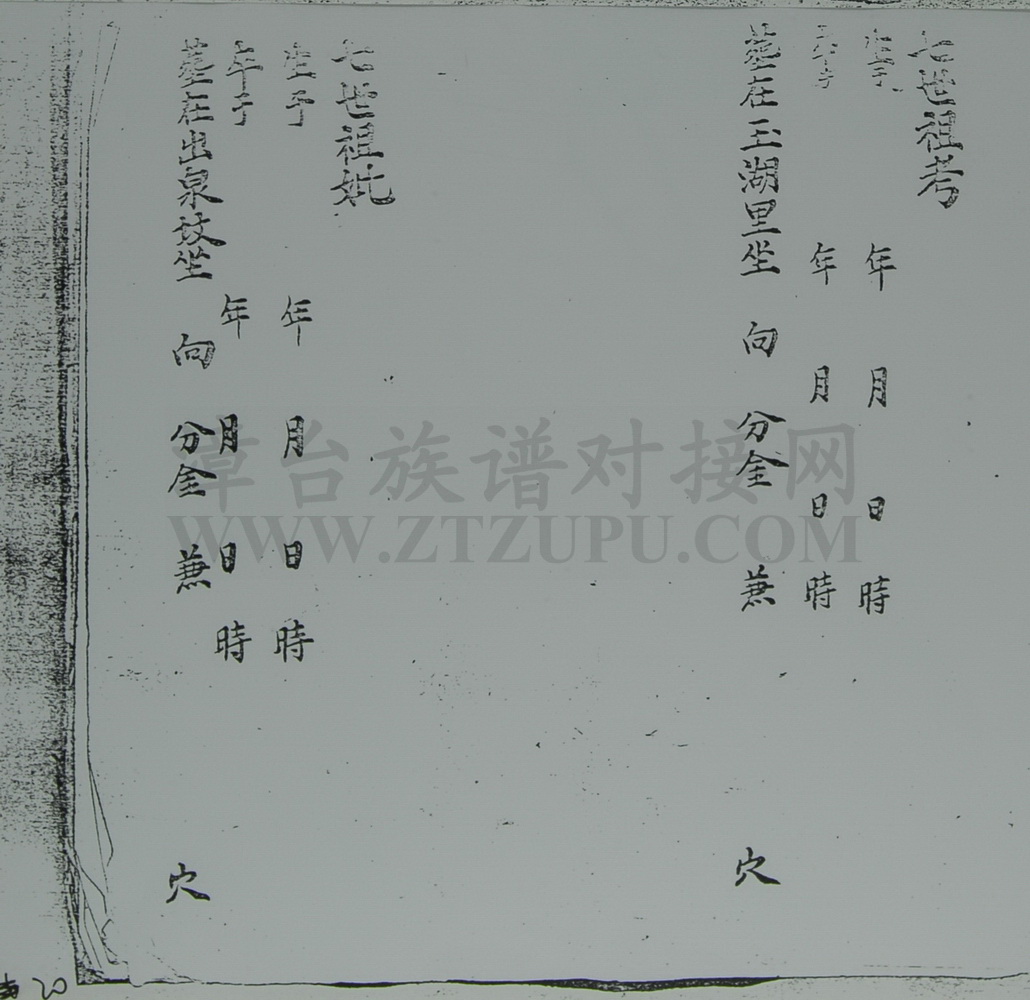 七世祖考
生于 年 月 日 時
卒于 年 月 日 時
墓在玉湖里坐 向 分金 兼 穴
七世祖妣
生于 年 月 日 時
卒于 年 月 日 時
墓在出泉坟坐 向 分金 兼 穴
漳台族谱对接网
WWW.ZTZUPU.COM
20